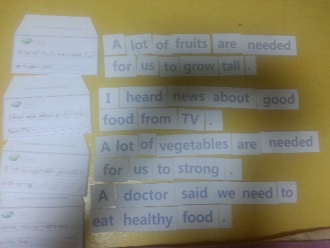 A lot of fruits are needed
for us to grow tall .
I heard news about good
food from TV .
A lot of vegetables are needed
for us to strong .
A doctor said we need to
eat healthy food .